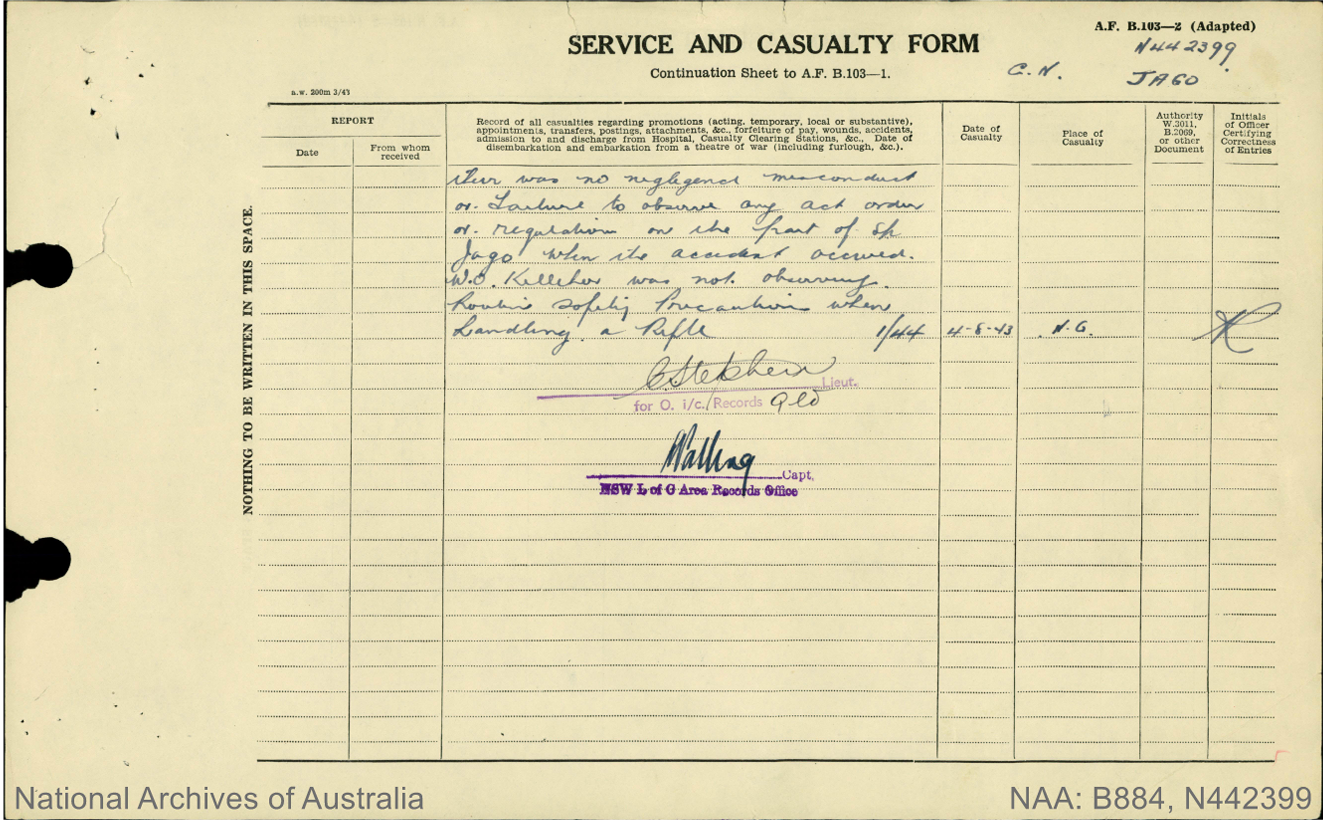 A.F. B.103—2 (Adapted)
SERVICE AND CASUALTY FORM
N442399
Continuation Sheet to A.F. B.103—1.
C.N.
JAGO
a.w. 200m 3/43
REPORT
Date
From whom received
Record of all casualties regarding promotions (acting, temporary, local or substantive),
appointments, transfers, postings, attachments, &c., forfeiture of pay, wounds, accidents,
admission to and discharge from Hospital, Casualty Clearing Stations, &c., Date of
disembarkation and embarkation from a theatre of war (including furlough, &c.).
Date of Casualty
Place of Casualty
Authority W.3011, B.2069, or other Document
Initials of Officer Certifying Correctness of Entries
NOTHING TO BE WRITTEN IN THIS SPACE.
their was no neglegence misconduct
or failure to observe any act order
or regulation on the part of
Jago when the accident occured.
W.O. Kelleher was not observing
Routine safety Precautions when
handling a Rifle 1/44 4-8-43 N.G.
C Stephens
Lieut.
for O. i/c. Records Qld
Capt.
NSW L of C Area Records Office
National Archives of Australia
NAA: B884, N442399